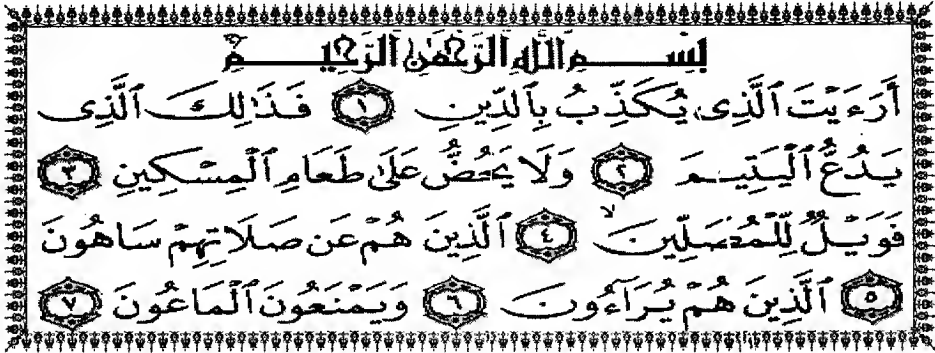 بِسْمِ ٱللَّهِ ٱلرَّحْمَٰنِ ٱلرَّحِيمِ
أَرَءَيْتَ ٱلَّذِى يُكَذِّبُ بِٱلدِّينِ ١ فَذَٰلِكَ ٱلَّذِى
يَدُعُّ ٱلْيَتِيمَ ٢ وَلَا يَحُضُّ عَلَىٰ طَعَامِ ٱلْمِسْكِينِ ٣
فَوَيْلٌ لِّلْمُصَلِّينَ ۙ ٤ ٱلَّذِينَ هُمْ عَن صَلَاتِهِمْ سَاهُونَ
٥ ٱلَّذِينَ هُمْ يُرَآءُونَ ٦ وَيَمْنَعُونَ ٱلْمَاعُونَ ٧